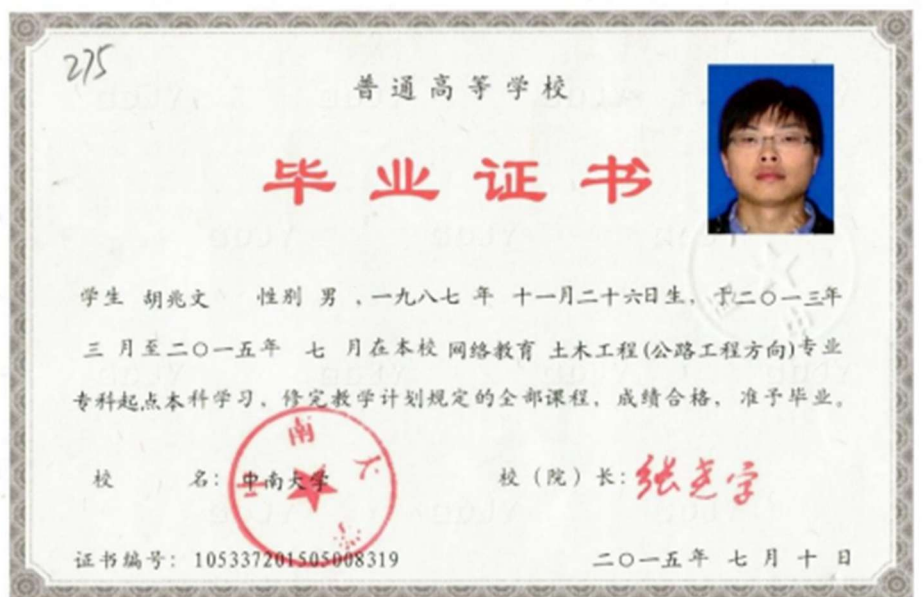 275
普通高等学校
毕业证书
学生 胡兆文 性别 男 ,一九八七年 十一月二十六日生, 于二〇一三年
三 月至二〇一五年 七 月在本校 网络教育 土木工程(公路工程方向)专业
专科起点本科学习, 修完教学计划规定的全部课程, 成绩合格, 准予毕业。
校 名: 中南大学 校(院)长: 张尧学
证书编号: 105337201505008319 二〇一五年 七月十日